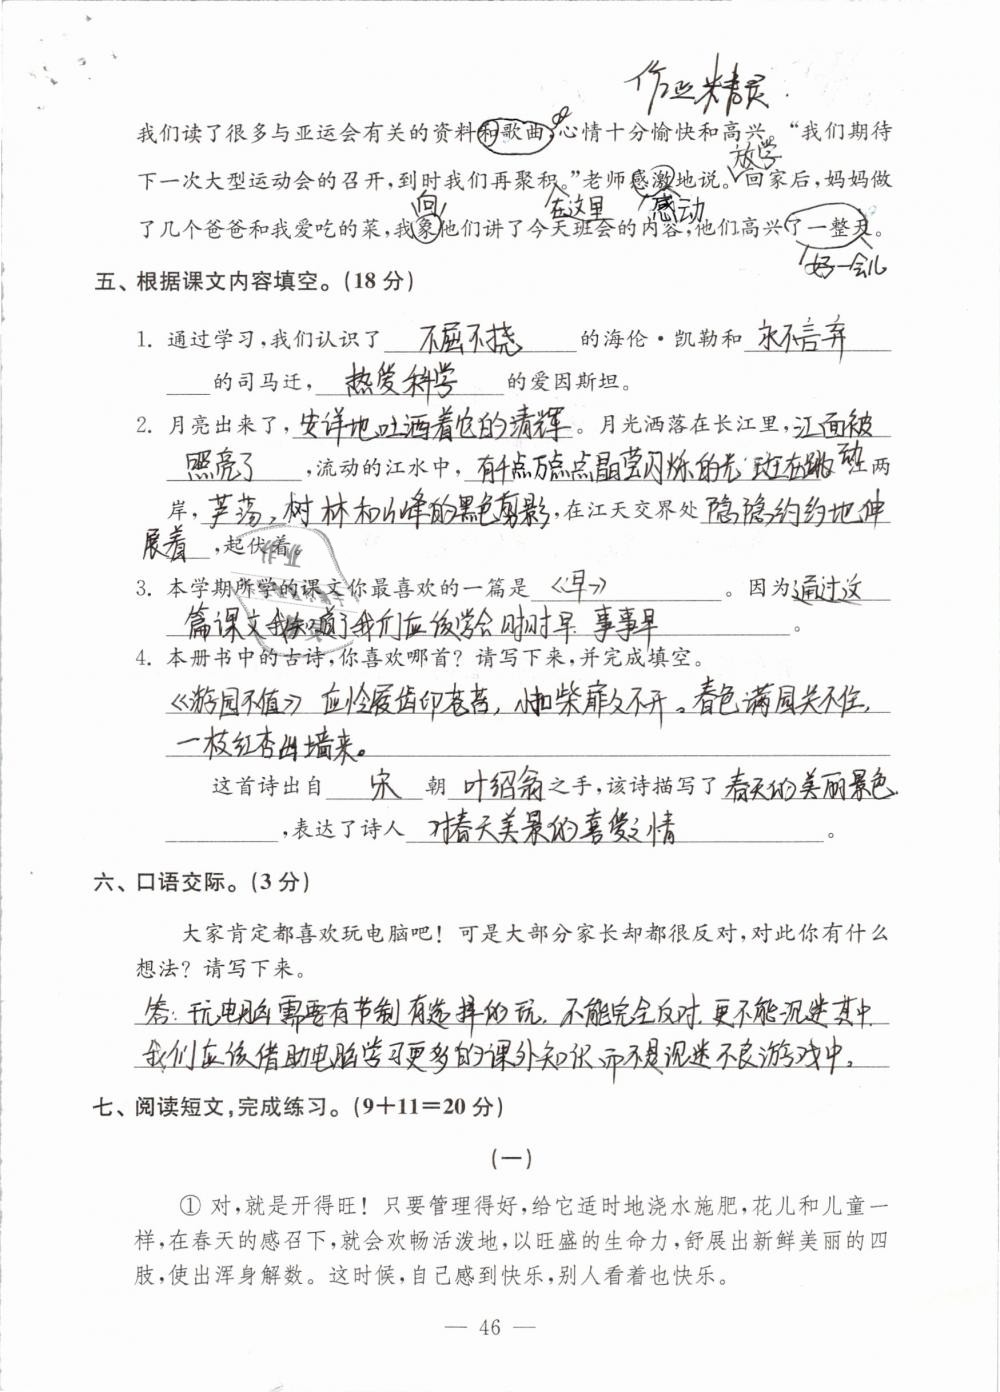 作业精灵
我们读了很多与亚运会有关的资料和歌曲,心情十分愉快和高兴。“我们期待
放学
下一次大型运动会的召开,到时我们再聚积。”老师感激地说。回家后,妈妈做
向 在这里 感动
了几个爸爸和我爱吃的菜,我象他们讲了今天班会的内容,他们高兴了一整天。
好一会儿
五、根据课文内容填空。(18分)
1. 通过学习,我们认识了 不屈不挠 的海伦·凯勒和 永不言弃
的司马迁, 热爱科学 的爱因斯坦。
2. 月亮出来了,安详地吐洒着它的清辉。月光洒落在长江里,江面被
照亮了,流动的江水中,有千点万点晶莹闪烁的光斑在跳动 在两
岸,芦荡、树林和山峰的黑色剪影,在江天交界处隐隐约约地伸
展着,起伏着。
3. 本学期所学的课文你最喜欢的一篇是 《早》 。因为通过这
篇课文我知道了我们应该学会时时早,事事早 。
4. 本册书中的古诗,你喜欢哪首?请写下来,并完成填空。
《游园不值》 应怜屐齿印苍苔,小扣柴扉久不开。春色满园关不住,
一枝红杏出墙来。
这首诗出自 宋 朝 叶绍翁之手,该诗描写了春天的美丽景色
,表达了诗人 对春天美景的喜爱之情 。
六、口语交际。(3分)
大家肯定都喜欢玩电脑吧!可是大部分家长却都很反对,对此你有什么
想法?请写下来。
答:玩电脑需要有节制有选择的玩,不能完全反对,更不能沉迷其中.
我们应该借助电脑学习更多的课外知识而不是沉迷不良游戏中。
七、阅读短文,完成练习。(9+11=20分)
(一)
① 对,就是开得旺!只要管理得好,给它适时地浇水施肥,花儿和儿童一
样,在春天的感召下,就会欢畅活泼地,以旺盛的生命力,舒展出新鲜美丽的四
肢,使出浑身解数。这时候,自己感到快乐,别人看着也快乐。
— 46 —